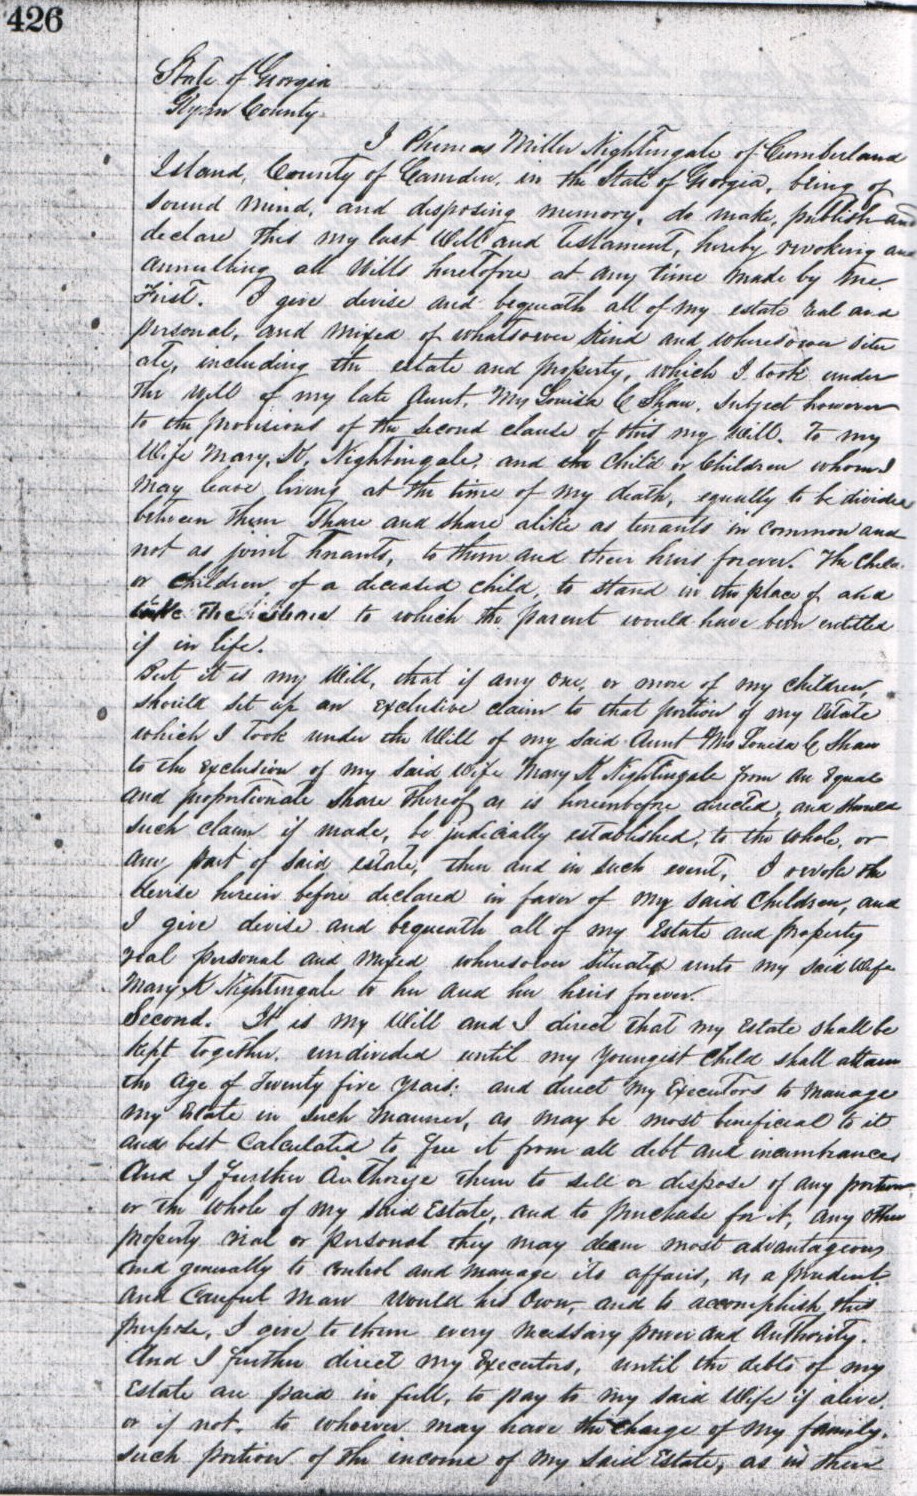 426
State of Georgia
Glynn County
I Phineas Miller Nightingale of Cumberland
Island, County of Camden, in the State of Georgia, being of
sound mind, and disposing memory, do make, publish and
declare this my last Will and Testament, hereby revoking and
annulling all Wills heretofore at any time made by me
First. I give devise and bequeath all of my estate real and
personal, and mixed of whatsoever kind and wheresoever situ
ate, including the estate and property, which I took under
the Will of my late Aunt, Mrs Louisa C Shaw, Subject however
to the provisions of the second clause of this my Will. To my
Wife Mary, K, Nightingale, and the Child or Children whom I
may leave living at the time of my death, equally to be divided
between them Share and Share alike as tenants in common and
not as joint Tenants, to them and their heirs forever. The Child
or children of a deceased child, to stand in the place of and
take the share to which the parent would have been entitled
if in life.
But it is my Will, that if any one, or more of my children,
should set up an exclusive claim to that portion of my Estate
which I took under the Will of my said Aunt Mrs Louisa C Shaw
to the exclusion of my said Wife Mary K Nightingale from an equal
and proportionate share thereof as is hereinbefore directed, and should
such claim if made, be judicially established, to the whole, or
any part of said estate, then and in such event, I revoke the
devise herein before declared in favor of my said Children, and
I give devise and bequeath all of my Estate and property
real personal and mixed wheresoever situated unto my said Wife
Mary K Nightingale to her and her heirs forever.
Second. It is my Will and I direct that my Estate shall be
kept together, undivided until my youngest child shall attain
the age of Twenty five years: and direct my Executors to manage
my Estate in such manner, as may be most beneficial to it
and best Calculated to free it from all debt and incumbrances
And I further Authorize them to sell or dispose of any portion
or the whole of my said Estate, and to purchase for it, any other
property real or personal they may deem most advantageous
and generally to control and manage its affairs, as a prudent,
and Careful man would his own, and to accomplish this
purpose, I give to them every necessary power and Authority.
And I further direct my Executors, until the debts of my
Estate are paid in full, to pay to my said Wife if alive,
or if not, to whoever may have the charge of my family,
such portion of the income of my said Estate, as in their